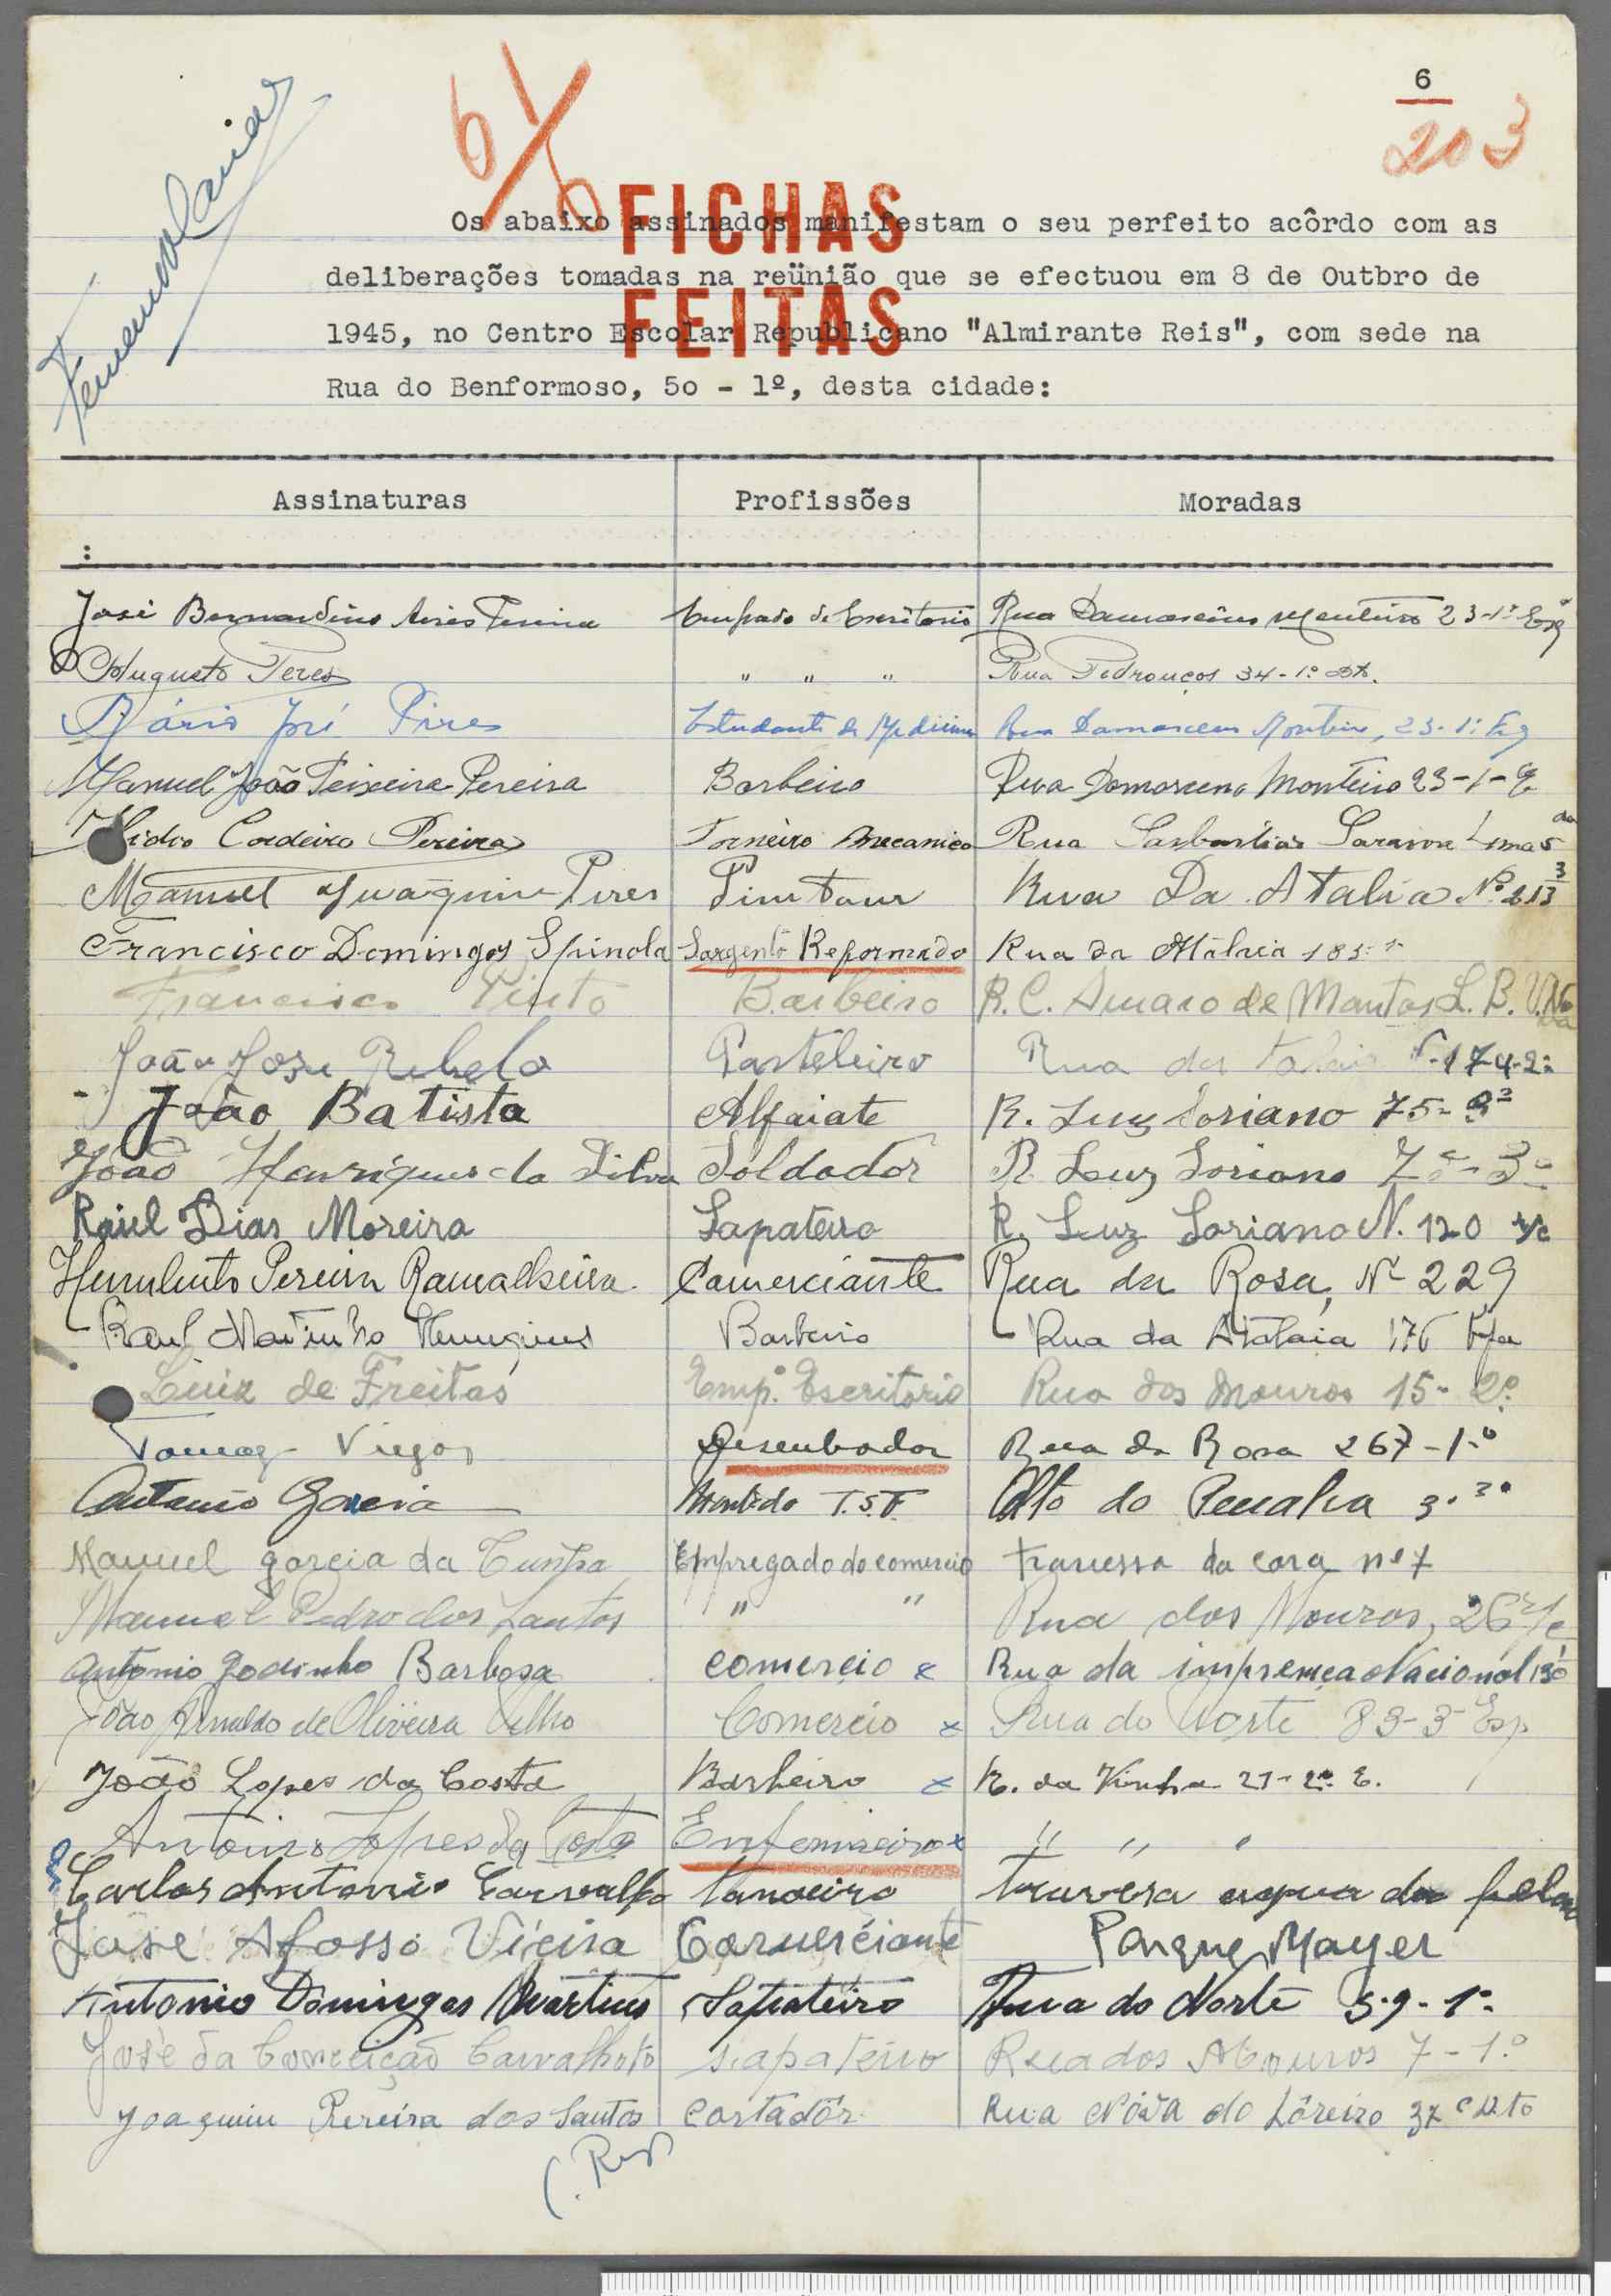 6
203
FICHAS
FEITAS
Os abaixo assinados manifestam o seu perfeito acôrdo com as
deliberações tomadas na reünião que se efectuou em 8 de Outbro de
1945, no Centro Escolar Republicano "Almirante Reis", com sede na
Rua do Benformoso, 5o - 1º, desta cidade:
Assinaturas Profissões Moradas
:
José Bernardino Aires Pereira de Escritorio Rua Damasceno Monteiro 23-1º Esq
Augusto Peres " " " Rua Pedrouços 34-1º Dt.
Mário José Pires Estudante de Medicina Rua Damasceno Monteiro, 23-1º Esq
Manuel João Teixeira Pereira Barbeiro Rua Domasceno Monteiro 23-1-
Cordeiro Pereira Torneiro Mecanico Rua Saraiva Lima
Manuel Juaquim Pires Pintour Rua Da Atalia Nº 213
Francisco Domingos Spinola Sargento Reformado Rua da Atalaia 183-1º
Francisco Pinto Barbeiro R. C. Amaro de Mantas L. B.
João Jose Rebelo Pasteleiro Rua da 174-2º
João Batista Alfaiate R. Luz Soriano 75-
João Henriques da Silva Soldador R Luz Soriano
Raúl Dias Moreira Sapateiro R. Luz Soriano N. 120 r/c
Humberto Pereira Ramalheira Comerciante Rua da Rosa, Nº 229
Raul Martinho Barbeiro Rua da Atalaia 176
Luiz de Freitas Emp.º Escritorio Rua dos Mouros 15-2º
Tomaz Viegas Rua da Rosa 267-1º
Antonio Garcia T.S.F. Alto do Penalva 3.
Manuel garcia da Cunha Empregado do comercio travessa da cara nº 7
Manuel Pedro dos Santos " " Rua dos Mouros, 26 r/c
Antonio Godinho Barbosa comercio x Rua da impremça Nacional
João Arnaldo de Oliveira Velho Comercio x Rua do Norte 83-3º Esq
João Lopes da Costa Barbeiro x R. da Vinha 21-2º E.
Antonio Lopes da Costa Enfermeiro x " " "
Carlos Antonio Carvalho tanoeiro travesa
José Afosso Vieira Comerciante Parque Mayer
Antonio Domingos Martins Sapateiro Rua do Norte 59-1º
José da Conceição Carvalhoto sapateiro Rua dos Mouros 7-1º
Joaquim Pereira dos Santos Cortadôr Rua Nóva do Lôreiro 37